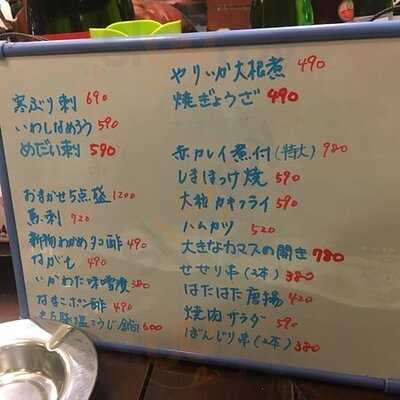 寒ぶり刺 690
いわしなめろう 590
めだい刺 590
おまかせ5点盛 1200
馬刺 720
新物わかめタコ酢 490
ながも 490
いかわた味噌漬 380
なまこポン酢 490
塩こうじ 600
やりいか大根煮 490
焼ぎょうざ 490
赤カレイ煮付(特大) 980
しまほっけ焼 590
大粒カキフライ 590
ハムカツ 520
大きなカマスの開き 780
せせり串(2本) 380
はたはた唐揚 420
焼肉サラダ 590
ぼんじり串(2本) 380